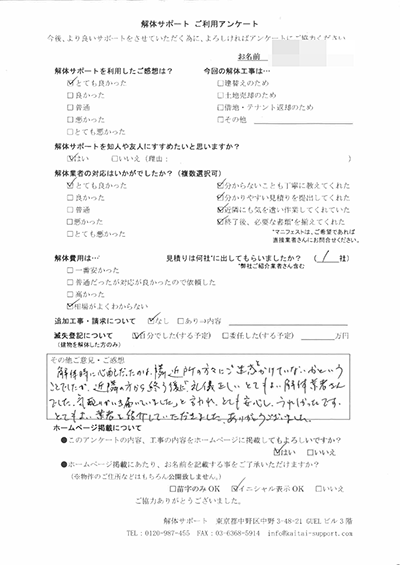 解体サポート ご利用アンケート
今後、より良いサポートをさせていただく為に、よろしければアンケートにご協力ください。
お名前
解体サポートを利用したご感想は？
☑とても良かった
□良かった
□普通
□悪かった
□とても悪かった
今回の解体工事は…
□建替えのため
□土地売却のため
□借地・テナント返却のため
□その他
解体サポートを知人や友人にすすめたいと思いますか？
☑はい □いいえ（理由： ）
解体業者の対応はいかがでしたか？（複数選択可）
☑とても良かった
□良かった
□普通
□悪かった
□とても悪かった
☑分からないことも丁寧に教えてくれた
☑分かりやすい見積りを提出してくれた
☑近隣にも気を遣い作業してくれていた
☑終了後、必要な書類*を揃えてくれた
*マニフェストは、ご希望であれば
直接業者さんにお問合せください。
解体費用は…
□一番安かった
□普通だったが対応が良かったので依頼した
□高かった
☑相場がよくわからない
見積りは何社*に出してもらいましたか？ （ 1 社）
*弊社ご紹介業者さん含む
追加工事・請求について ☑なし □あり→内容
滅失登記について ☑自分でした(する予定) □委任した(する予定) 万円
（建物を解体した方のみ）
その他ご意見・ご感想
解体時に心配だったのは、隣近所の方々にご迷惑をかけていないかという
ことでしたが、近隣の方から終り後に「礼儀正しい とてもよい解体業者さん
でした。気配りがいき届いていました」と言われ、とても安心し、うれしかったです。
とてもよい業者を紹介していただきました。ありがとうございました。
ホームページ掲載について
●このアンケートの内容、工事の内容をホームページに掲載してもよろしいですか？
☑はい □いいえ
●ホームページ掲載にあたり、お名前を記載する事をご了承いただけますか？
（※物件のご住所などはもちろん公開致しません。）
□苗字のみOK ☑イニシャル表示OK □いいえ
ご協力ありがとうございました。
解体サポート 東京都中野区中野3-48-21 GUELビル3階
TEL：0120-987-455 FAX：03-6368-5914 info@kaitai-support.com